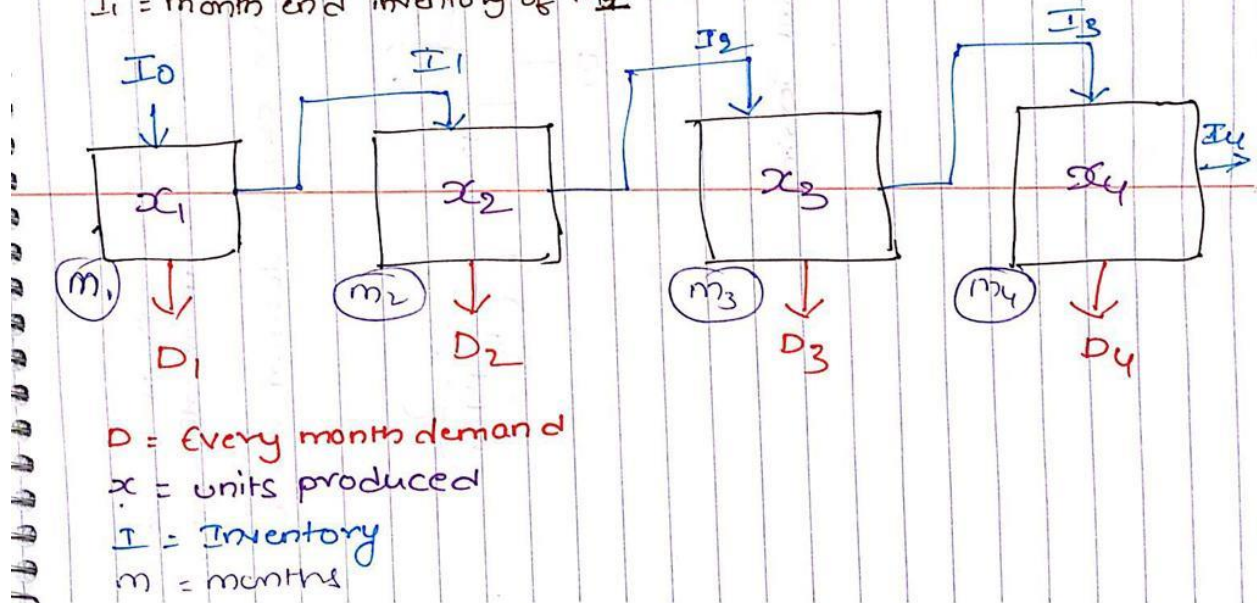 I₁ = month end inventory of
I0 I1 I2 I3
x1 x2 x3 x4 I4
m1 m2 m3 m4
D1 D2 D3 D4
D = Every month demand
x = units produced
I = Inventory
m = months